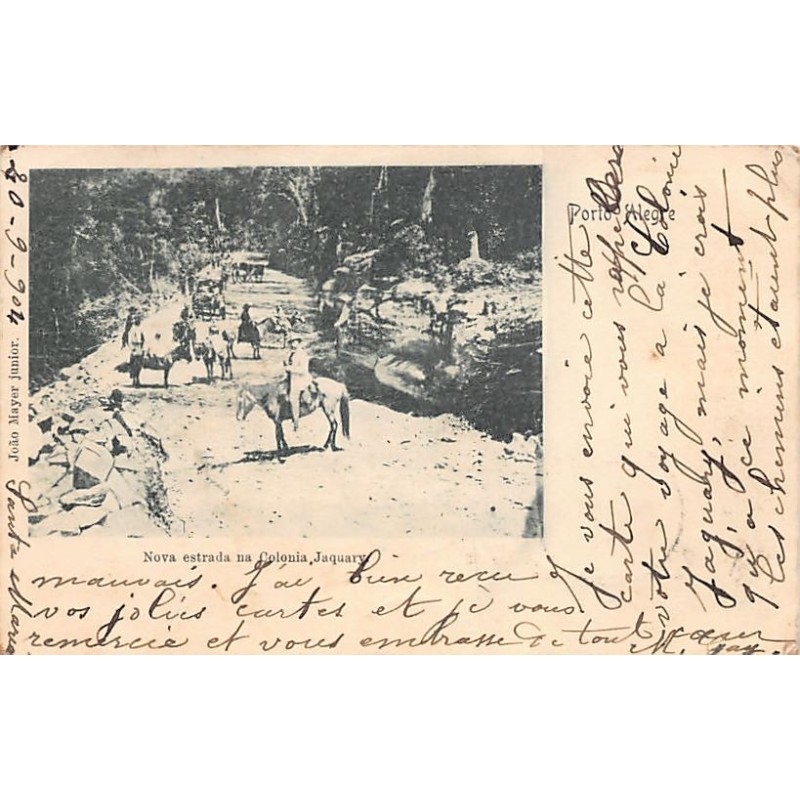 Porto Alegre
João Mayer junior.
Nova estrada na Colonia Jaquary
Santa Maria
20-9-904
Je vous envoie cette
carte qui vous rappellera
votre voyage à la Colonie
Jaguary, mais je crois
qu'à ce moment
les chemins étaient plus
mauvais. J'ai bien reçu
vos jolies cartes et je vous
remercie et vous embrasse de tout cœur
M.